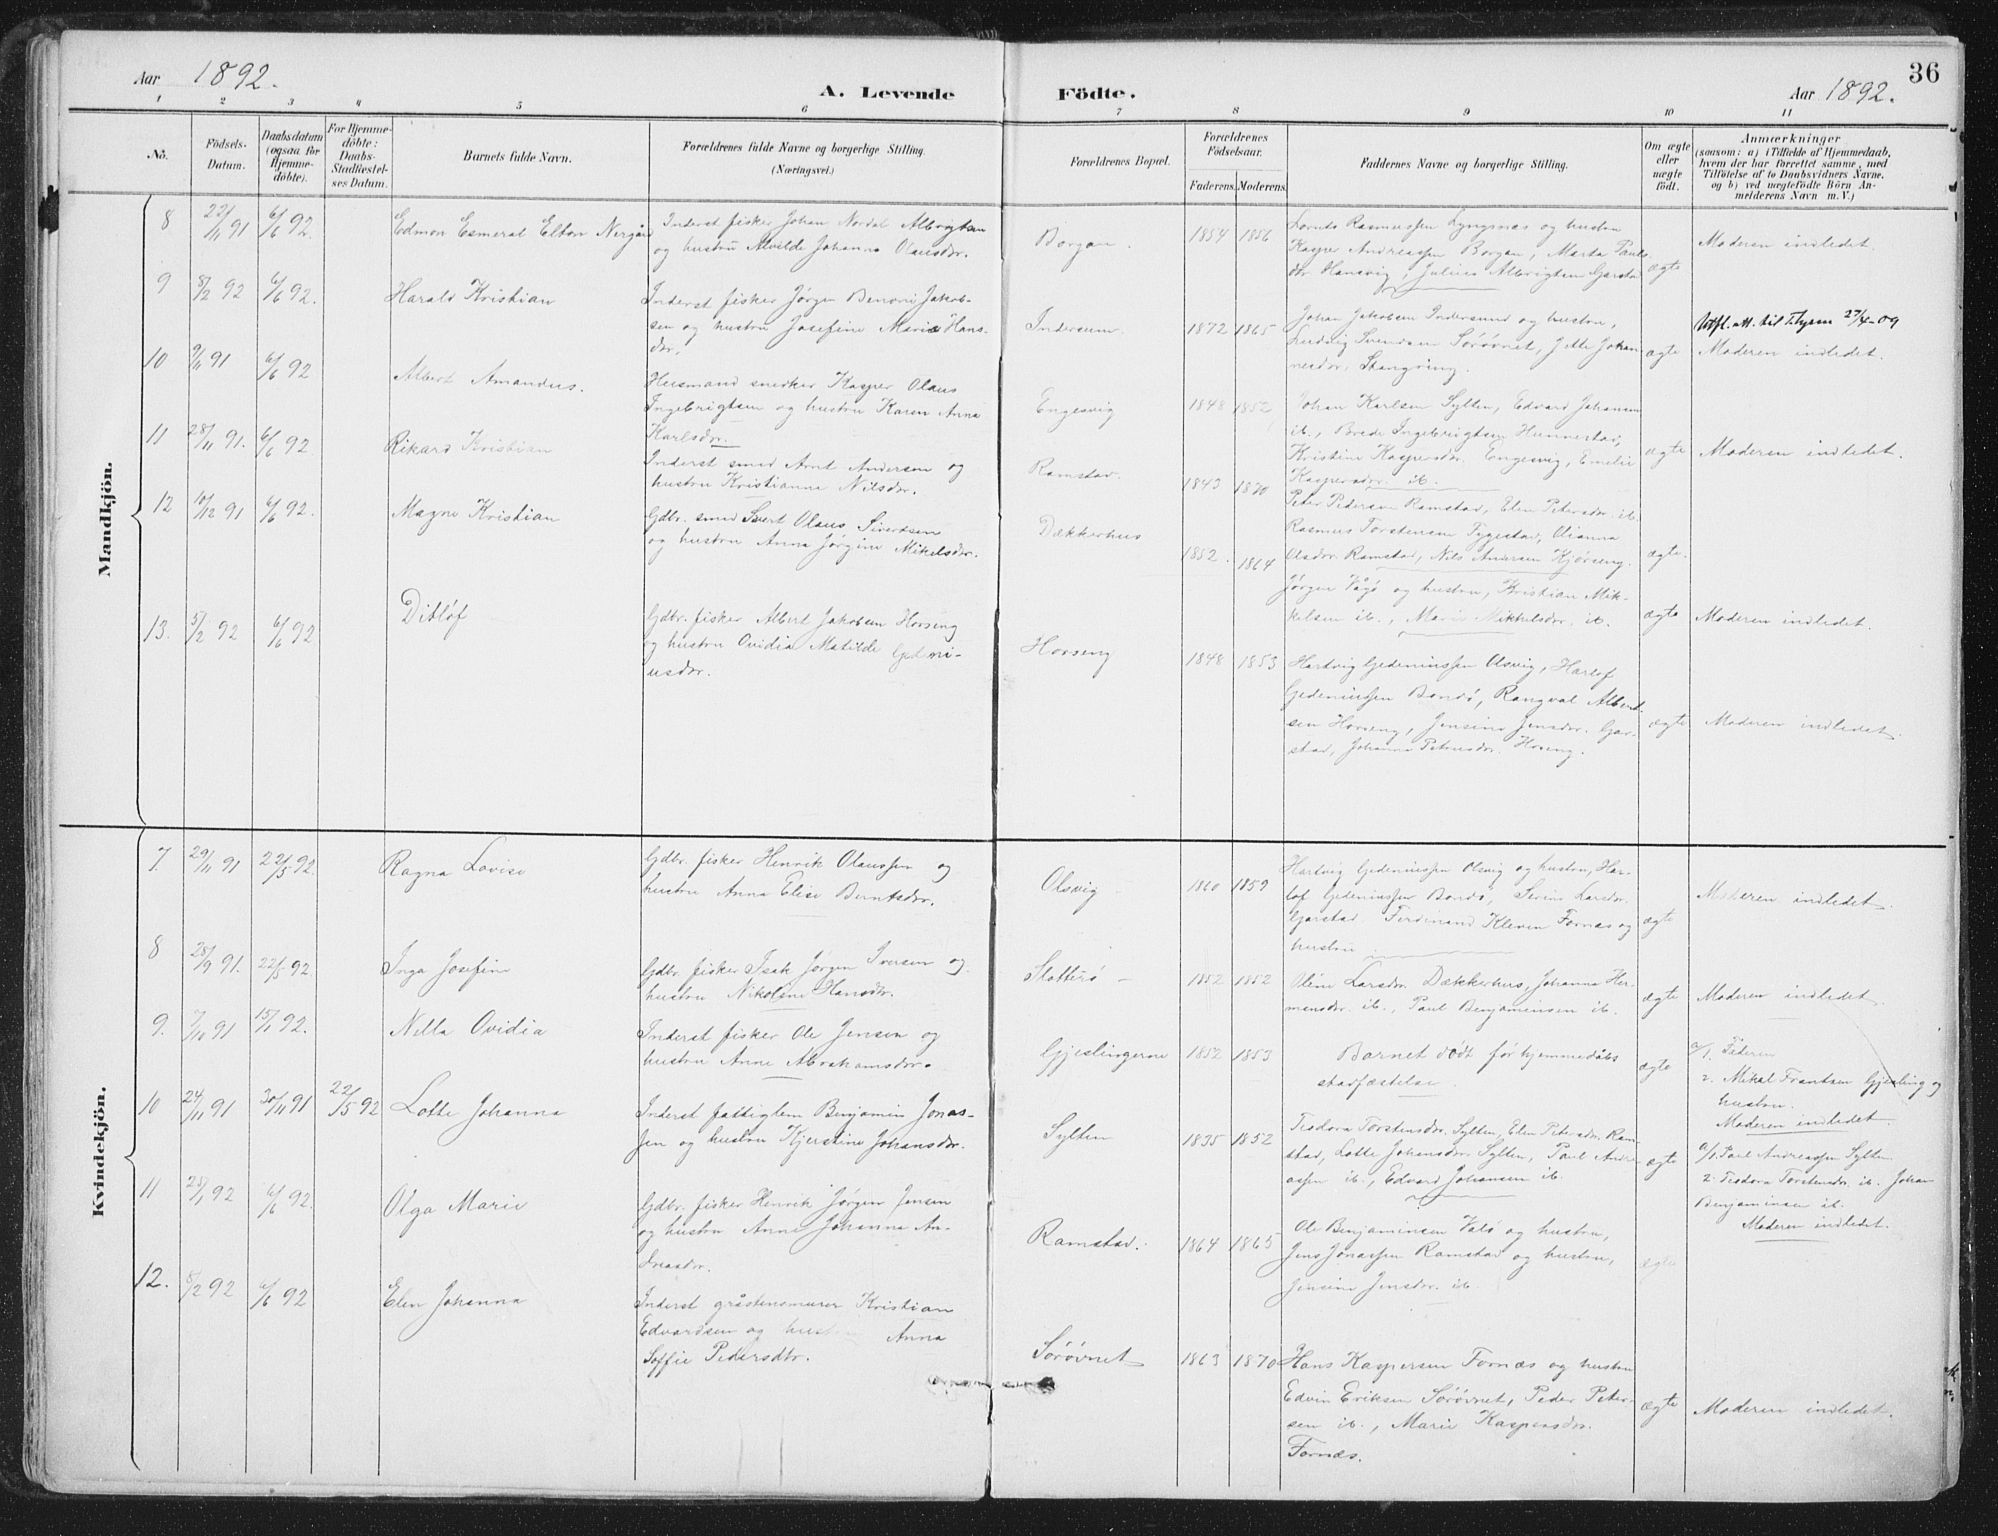 36
Aar 1892.
A. Levende Födte.
Aar 1892.
1 2 3 4 5 6 7 8 9 10 11
No.
Födsels-
Datum.
Daabsdatum
(ogsaa for
Hjemme-
döbte).
For Hjemme-
döbte:
Daabs-
Stadfæstel-
ses Datum.
Barnets fulde Navn.
Forældrenes fulde Navne og borgerlige Stilling.
(Næringsvei.)
Forældrenes Bopæl.
Forældrenes
Födselsaar.
Faderens. Moderens.
Faddernes Navne og borgerlige Stilling.
Om ægte
eller
uægte
födt.
Anmærkninger
(saasom: a) i Tilfælde af Hjemmedaab,
hvem der har forrettet samme, med
Tilföielse af to Daabsvidners Navne.
og b) ved uægtefödte Börn An-
melderens Navn m. V.)
Mandkjön.
8 22/11 91 6/6 92. Edmon Esmeral Elton Nergård
Inderst fisker Johan Nordal Albrigtsen
og hustru Alvilde Johanna Olausdtr.
Borgan. 1854 1856
Lornts Rasmussen Lyngsnæs og hustru
Kasper Andreassen Borgan, Marta Pauls
dtr Hansvig, Julius Albrigtsen Garstad
ægte Moderen indledet.
9 8/2 92 6/6 92. Harald Kristian
Inderst fisker Jørgen Benoni Jakob-
sen og hustru Josefine Marie Hans-
dtr.
Indersum. 1872 1865
Johan Jakobsen Indersund og hustru,
Ludvig Svendsen Sørøvnet, Jette Johan-
nesdtr. Stangving.
ægte
27/4-09
Moderen indledet.
10 9/11 91 6/6 92 Albert Amandus.
Husmand snedker Kasper Olaus
Ingebrigtsen og hustru Karen Anna
Karlsdtr.
Engesvig 1848 1852
Johan Karlsen Sylten, Edvard Johansen
ib., Brede Ingebrigtsen Hunnestad,
Kristine Kaspersdtr. Engesvig, Emelie
Kaspersdtr. ib.
ægte Moderen indledet.
11 28/11 91. 6/6 92 Rikard Kristian
Inderst smed Arnt Andersen og
hustru Kristianna Nilsdtr.
Ramstad. 1843 1870
Peter Pedersen Ramstad, Elen Petersdtr. ib.
Rasmus Torstensen Fygestad, Olianna
Olsdtr. Ramstad, Nils Andersen Kjørseng.
ægte.
12 10/12 91 6/6 92. Magne Kristian
Gdbr. smed Sivert Olaus Sivertsen
og hustru Anna Jørgine Mikelsdtr.
Dækkerhus 1852. 1864
Jørgen Vågø og hustru, Kristian Mik-
kelsen ib., Marie Mikkelsdtr. ib.
ægte Moderen indledet.
13. 5/2 92 6/6 92 Ditløf
Gdbr. fisker Albert Jakobsen Horseng
og hustru Ovidia Matilde Gedeni-
usdtr.
Horseng 1848 1853
Hartvig Gedeniussen Olsvig, Harlof
Gedeniussen Bondø, Rangval Albert-
sen Horseng, Jensine Jensdtr. Gar-
stad, Johanna Petrusdtr. Horseng.
ægte Moderen indledet.
Kvindekjön.
7. 29/11 91 22/5 92. Ragna Lovise
Gdbr. fisker Henrik Olaussen og
hustru Anna Elise Berntsdtr.
Olsvig 1860 1859
Hartvig Gedeniussen Olsvig og hustru, Har-
lof Gedeniussen Bondø, Serine Larsdtr.
Garstad. Ferdinand Kleven Fornæs og
hustru
ægte Moderen indledet.
8 28/9 91. 22/5 92 Inga Josefine
Gdbr. fisker Isak Jørgen Iversen og
hustru Nikoline Hansdtr.
Slotterø 1852 1852
Oline Larsdtr. Dækkerhus, Johanna Her-
mansdtr. ib., Paul Benjaminsen ib.
ægte Moderen indledet.
9. 7/10 91 15/1 92. Nella Ovidia
Inderst fisker Ole Jensen og
hustru Anne Abrahamsdtr.
Gjeslingerne 1852 1853
Barnet dødt før hjemmedåbs
stadfæstelse.
ægte
a/1. Federen
2. Mikal Frantsen Gjesling og
hustru.
Moderen indledet.
10 24/11 91 30/11 91 22/5 92 Lotte Johanna
Inderst fattiglem Benjamin Jonas-
sen og hustru Kjerstine Johansdtr.
Sylten 1835 1852
Teodora Torstensdtr. Sylten, Elen Petersdtr. Ram-
stad, Lotte Johansdtr. Sylten, Paul Andre-
assen ib., Edvard Johansen ib.
ægte
a/1 Paul Andreassen Sylten
2. Teodora Torstensdtr. ib. Johan
Benjaminsen ib.
Moderen indledet.
11 25/1 92 6/6 92. Olga Marie
Gdbr. fisker Henrik Jørgen Jensen
og hustru Anne Johanna An-
dreasdtr.
Ramstad. 1864 1865
Ole Benjaminsen Valø og hustru,
Jens Jonassen Ramstad og hustru,
Jensine Jensdtr. ib.
ægte
12. 8/2 92 6/6 92 Elen Johanna
Inderst gråstensmurer Kristian
Edvardsen og hustru Anna
Soffie Pedersdtr.
Sørøvnet 1863 1870
Hans Kaspersen Fornæs og hustru
Edvin Eriksen Sørøvnet, Peder Peter-
sen ib., Marie Kaspersdtr.
Fornæs.
ægte Moderen indledet.